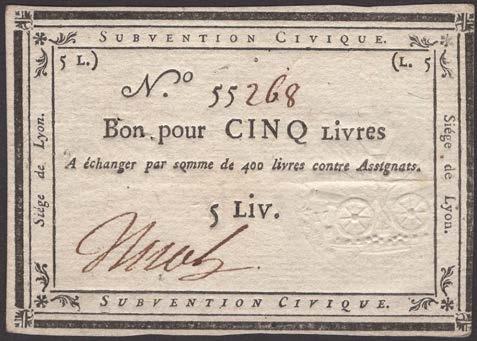 SUBVENTION CIVIQUE.
5 L.) (L. 5
N.º 55268
Bon pour CINQ LIVRES
A échanger par somme de 400 livres contre Assignats.
5 LIV.
Siège de Lyon.
Siège de Lyon.
SUBVENTION CIVIQUE.